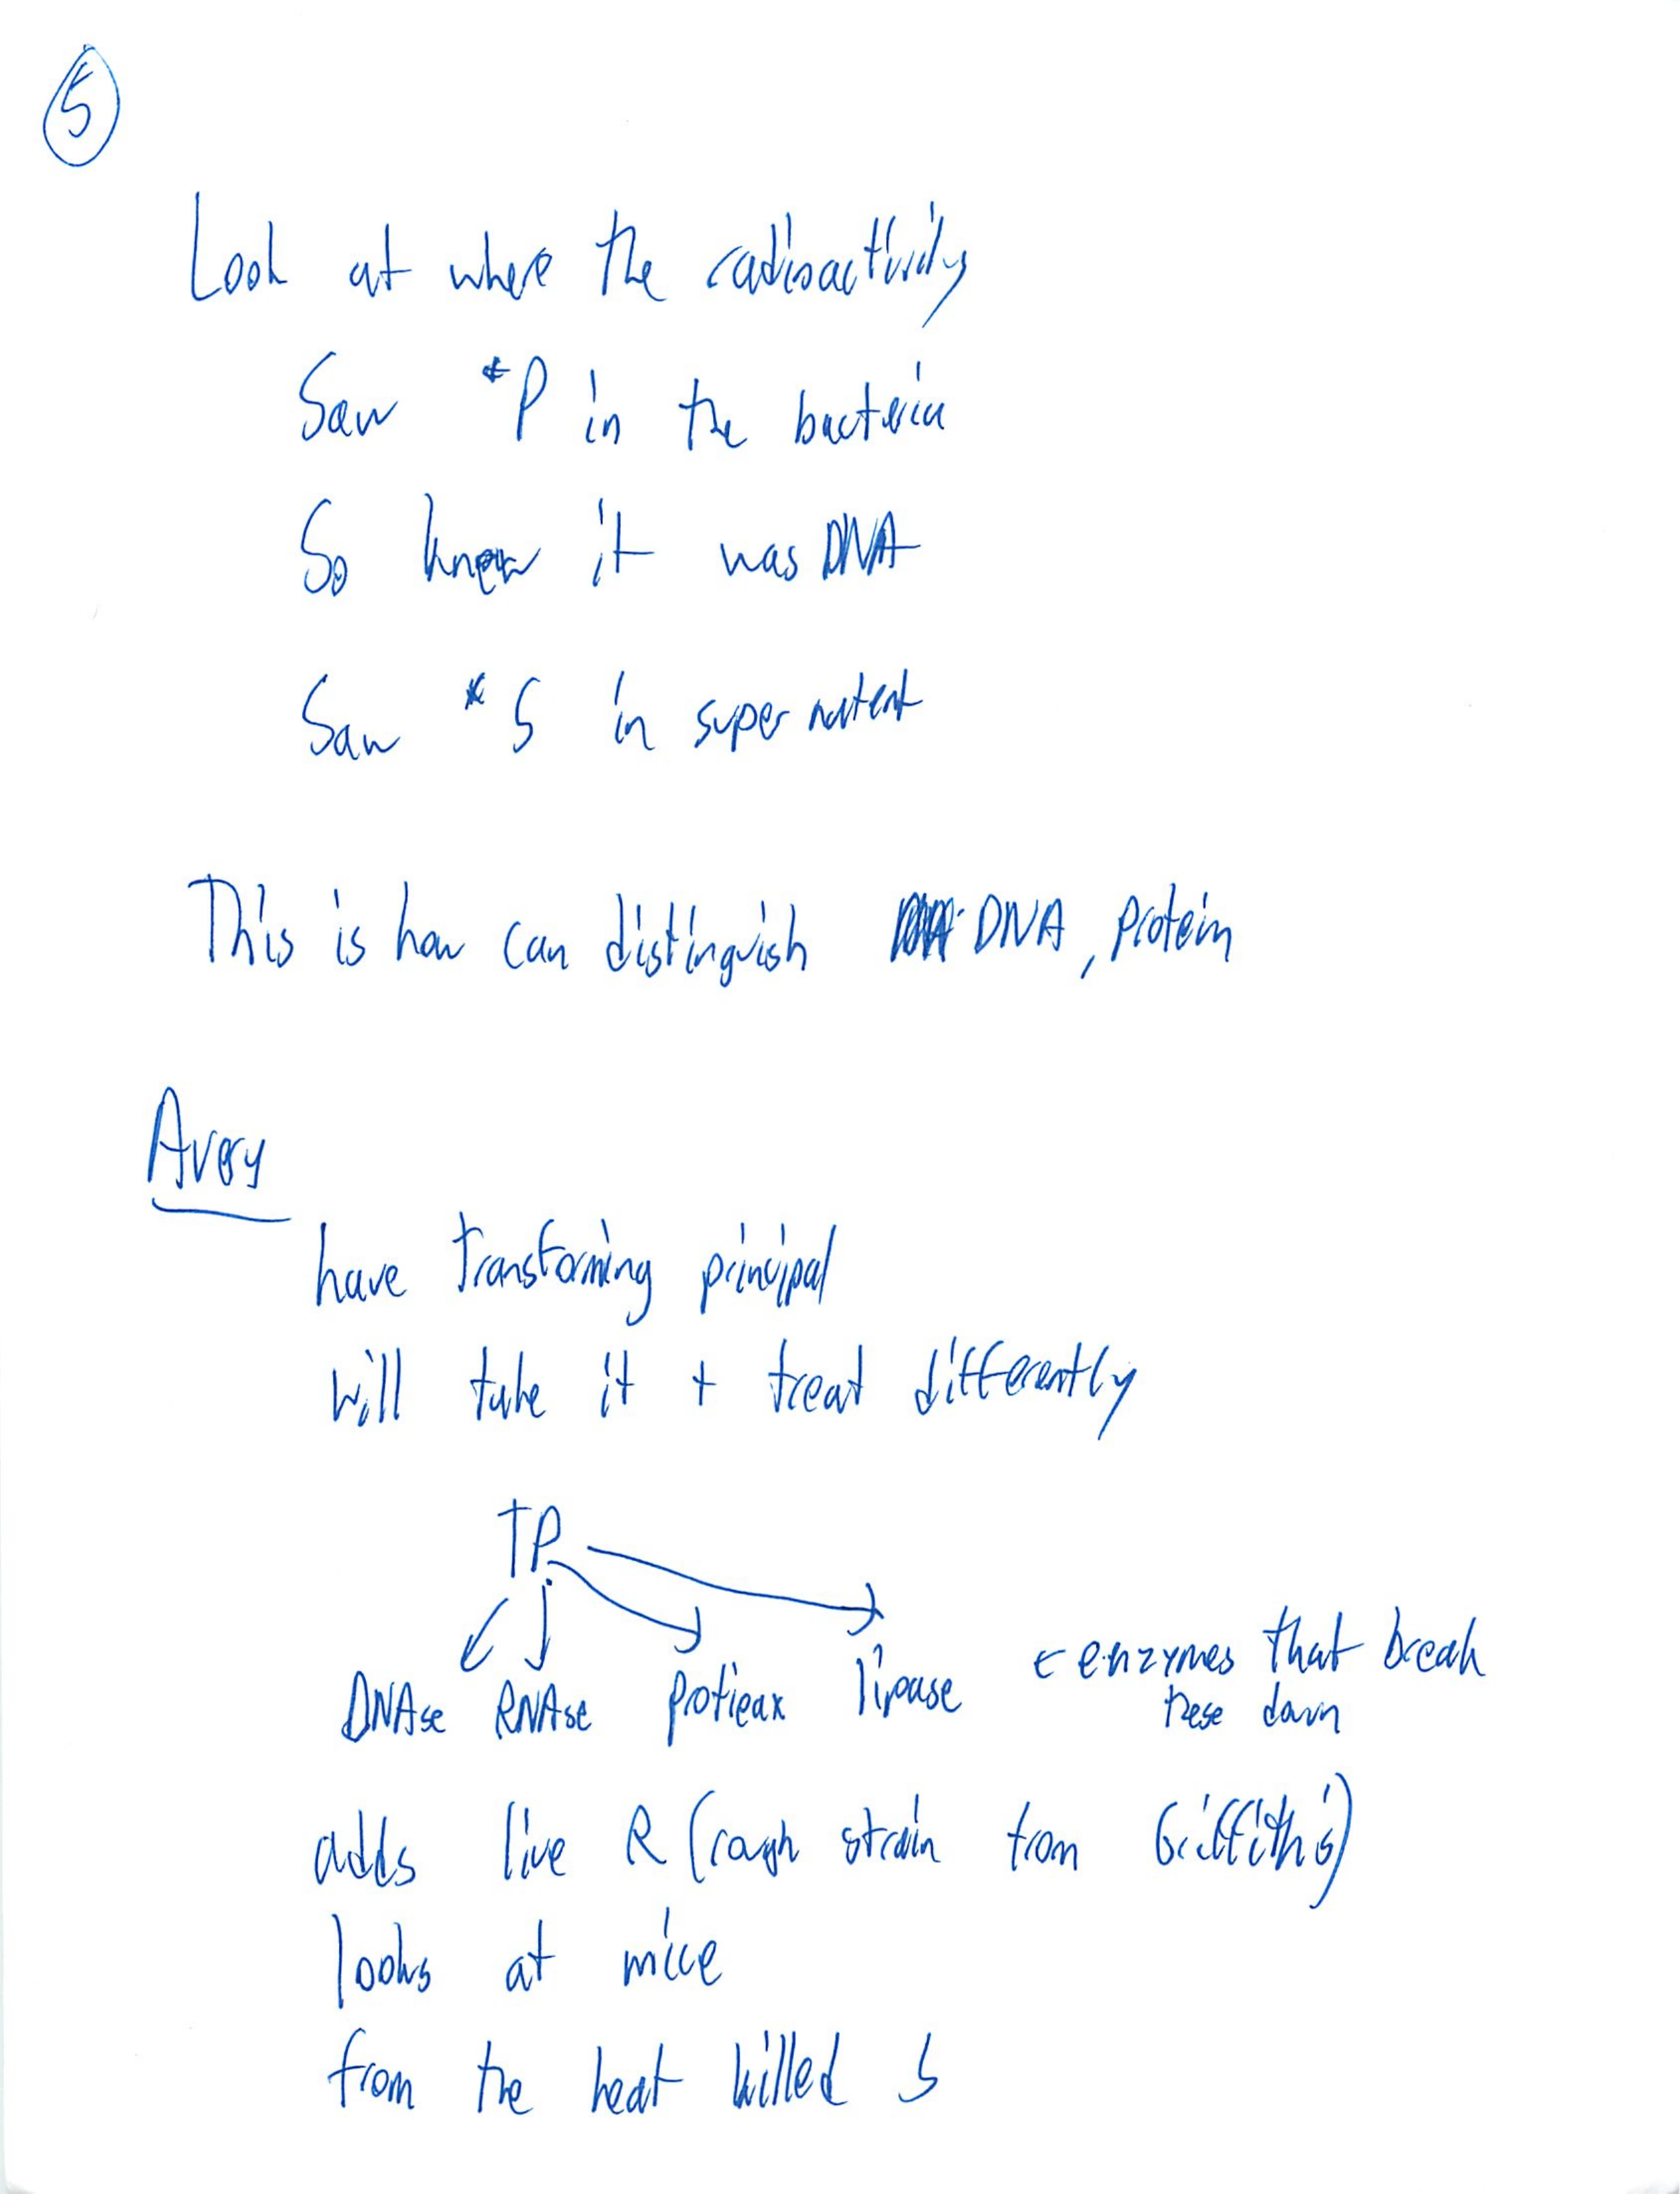 5
Look at where the radioactivity
Saw *P in the bacteria
So knew it was DNA
Saw *S in supernatent
This is how can distinguish DNA, protein
Avery
have transforming principal
will take it + treat differently
TP
DNAse RNAse lipase ← enzymes that break
these down
adds live R (rough strain from Griffith's)
looks at mice
from the heat killed S